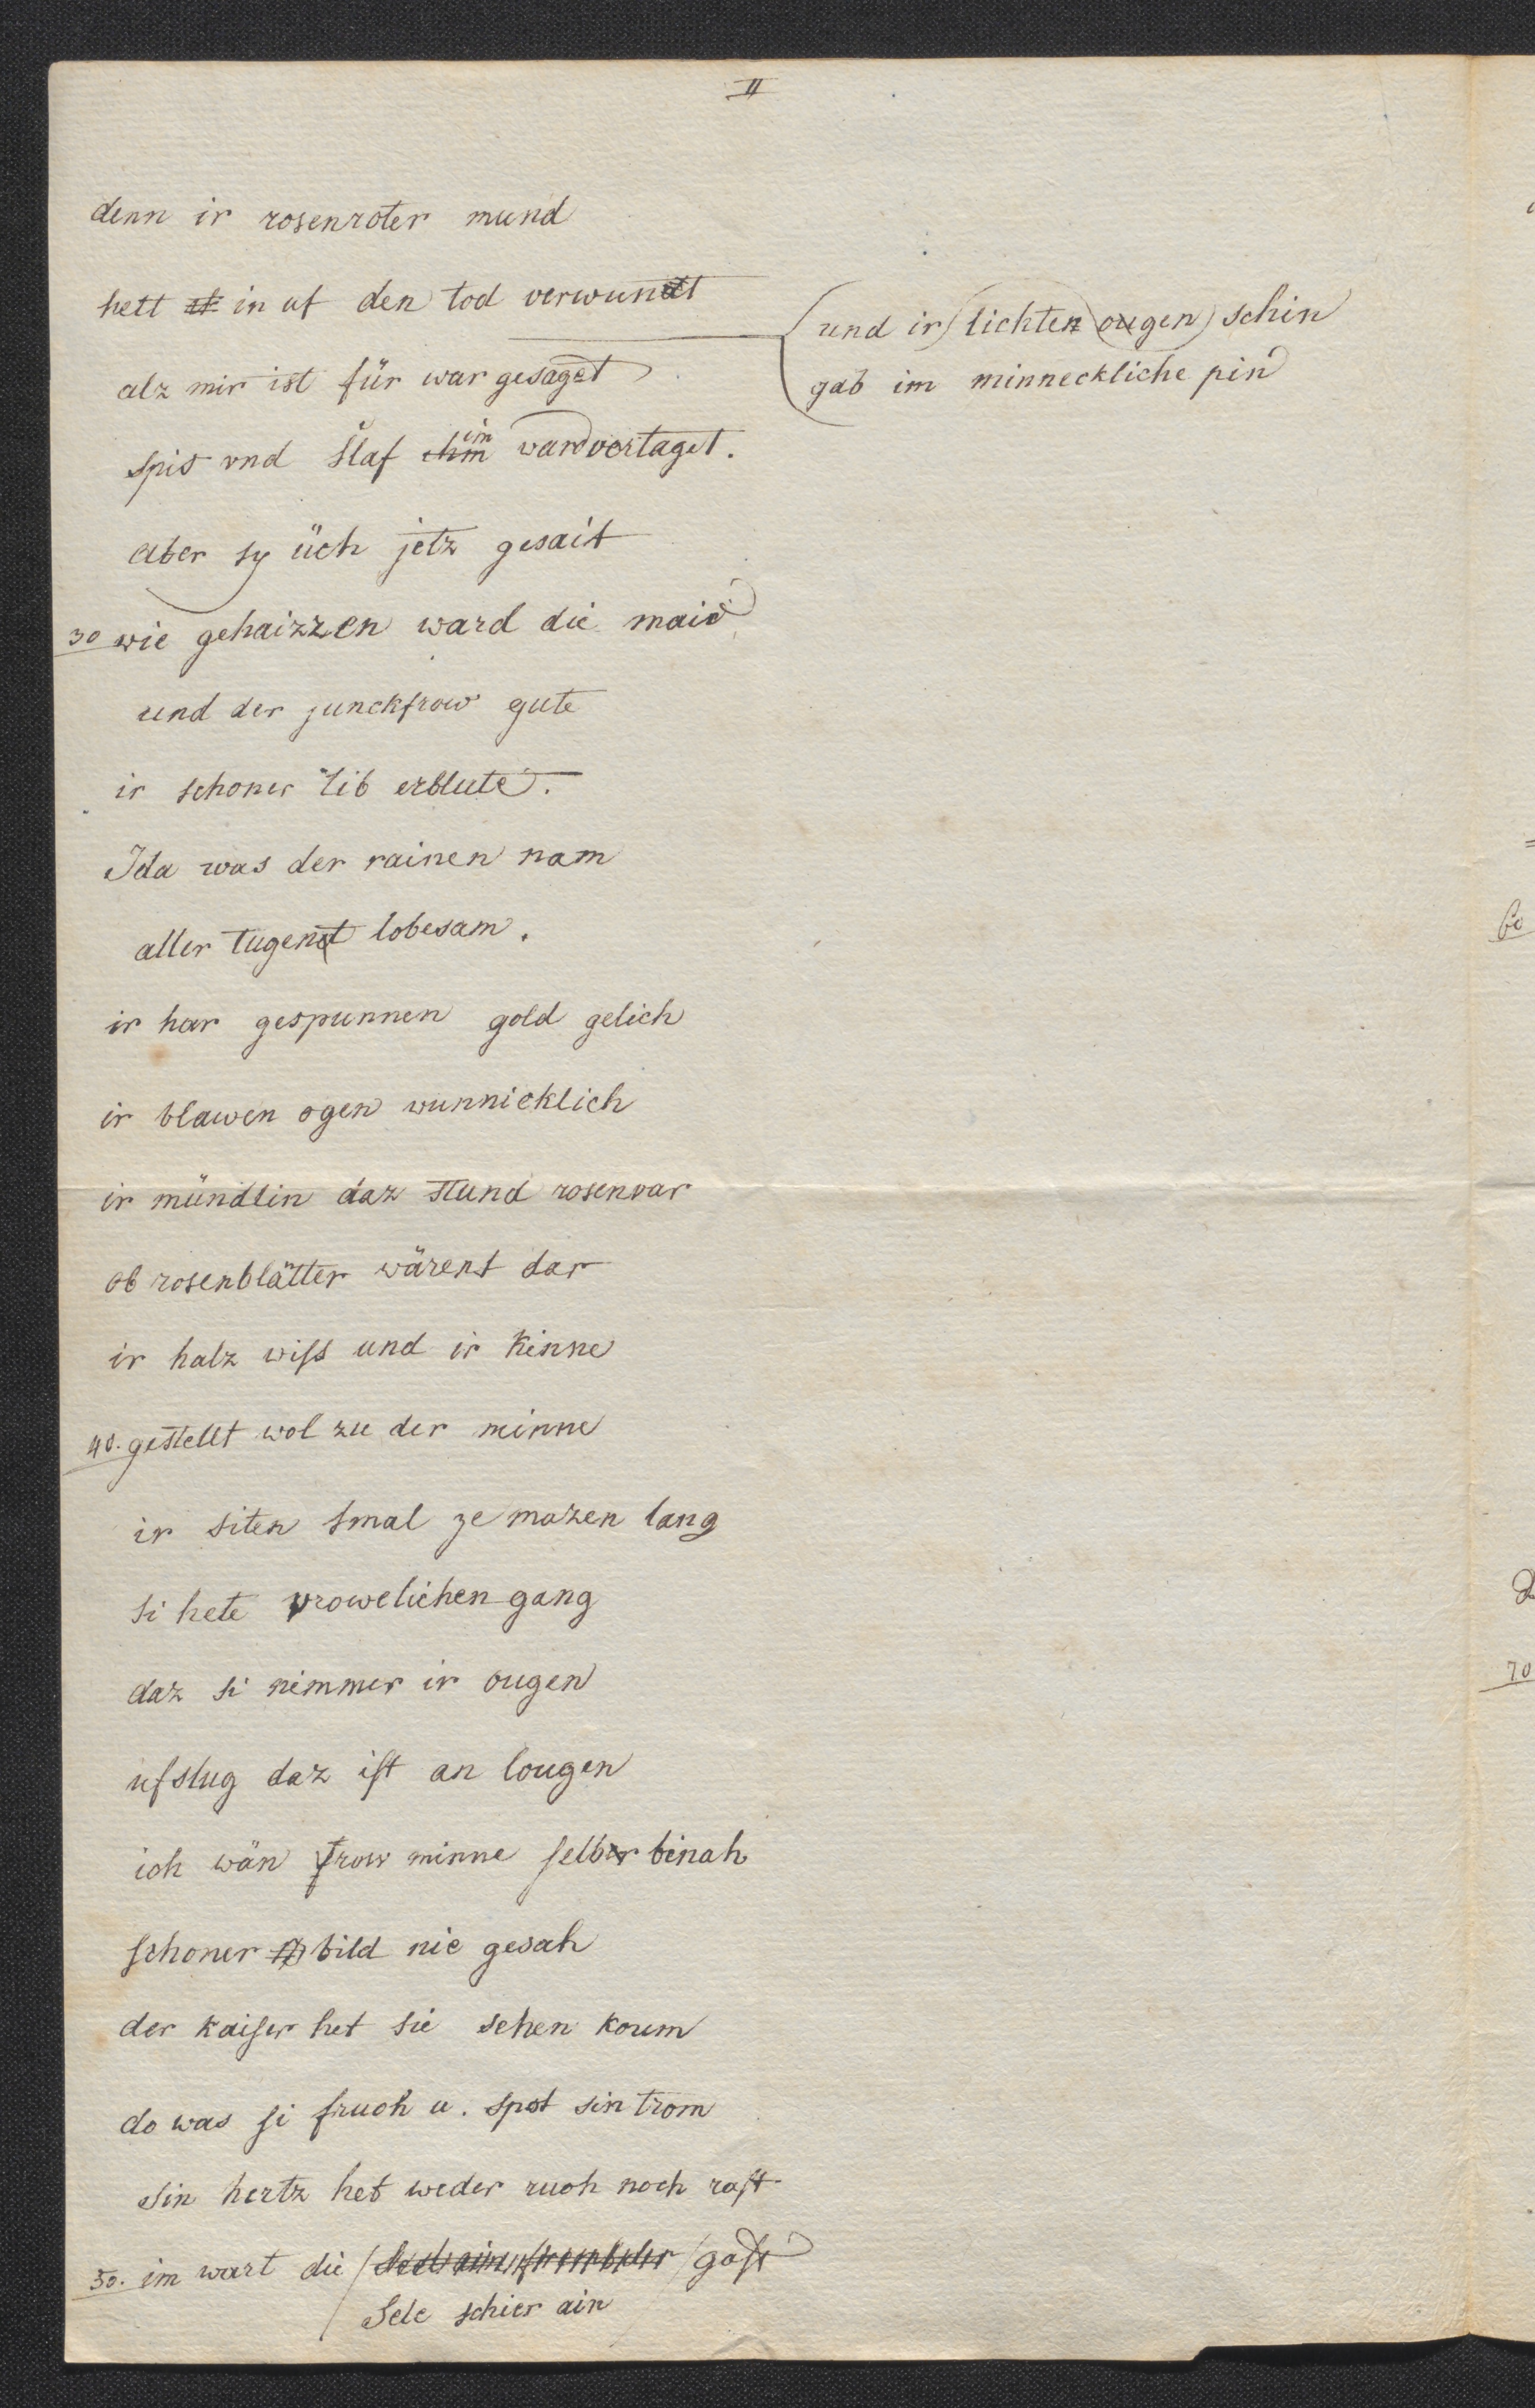 II
denn ir rosenroter mund
hett in uf den tod verwundt
und ir lichten ougen schin
gab im minneckliche pin
alz mir ist für war gesaget
spis vnd slaf im ward vertaget.
aber sy üch jetz gesait
30 wie gehaizzen ward die maid
und der junckfrow gute
ir schoner lib erblute.
Ida was der rainen nam
aller tugent lobesam.
ir har gespunnen gold gelich
ir blawen ogen wunnicklich
ir mündlin daz stund rosenvar
ob rosenblätter wärent dar
ir halz wiss und ir kinne
40. gestellt wol zu der minne
ir siten smal ze mazen lang
si hete vrowelichen gang
daz si nimmer ir ougen
ufslug daz ist an lougen
ich wän frow minne selber binah
schoner bild nie gesah
der kaiser het sie sehen koum
do was si fruoh u. spot sin trom
sin hertz het weder ruoh noch rast
50. im wart die gast
Sele schier ain
60
70